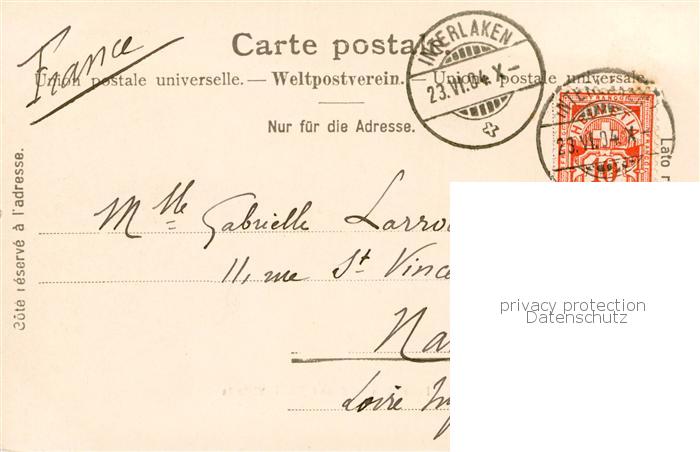 France
Carte postale.
Union postale universelle. — Weltpostverein. — Unione postale universale.
Nur für die Adresse.
Côté réservé à l'adresse.
INTERLAKEN
23.VI.04.X
23.VI.04.X
HELVETIA
FRANCO
10
Lato
Mlle Gabrielle
11, rue St Vince
Na
Loire
privacy protection
Datenschutz